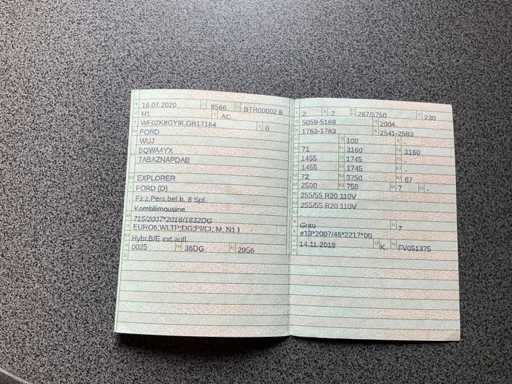 16.07.2020 8566 BTR00002 8
M1 AC
WF0ZK8GY9LGB17184 0
FORD
WUJ
5QWA4YX
TABAZNAPDAB
EXPLORER
FORD (D)
Fz.z.Pers.bef.b. 8 Spl.
Kombilimousine
715/2007*2018/1832DG
EURO6;WLTP;DG;PI/CI; M, N1 I
Hybr.B/E ext.aufl.
0035 36DG 2956
2 2 267/5750 230
5059-5168 2004
1783-1783 2541-2583
100
71 3160 3160
1455 1745
1455 1745
72 5750 67
2500 750 7 -
255/55 R20 110V
255/55 R20 110V
Grau 7
e13*2007/46*2217*00
14.11.2019 K FV051375